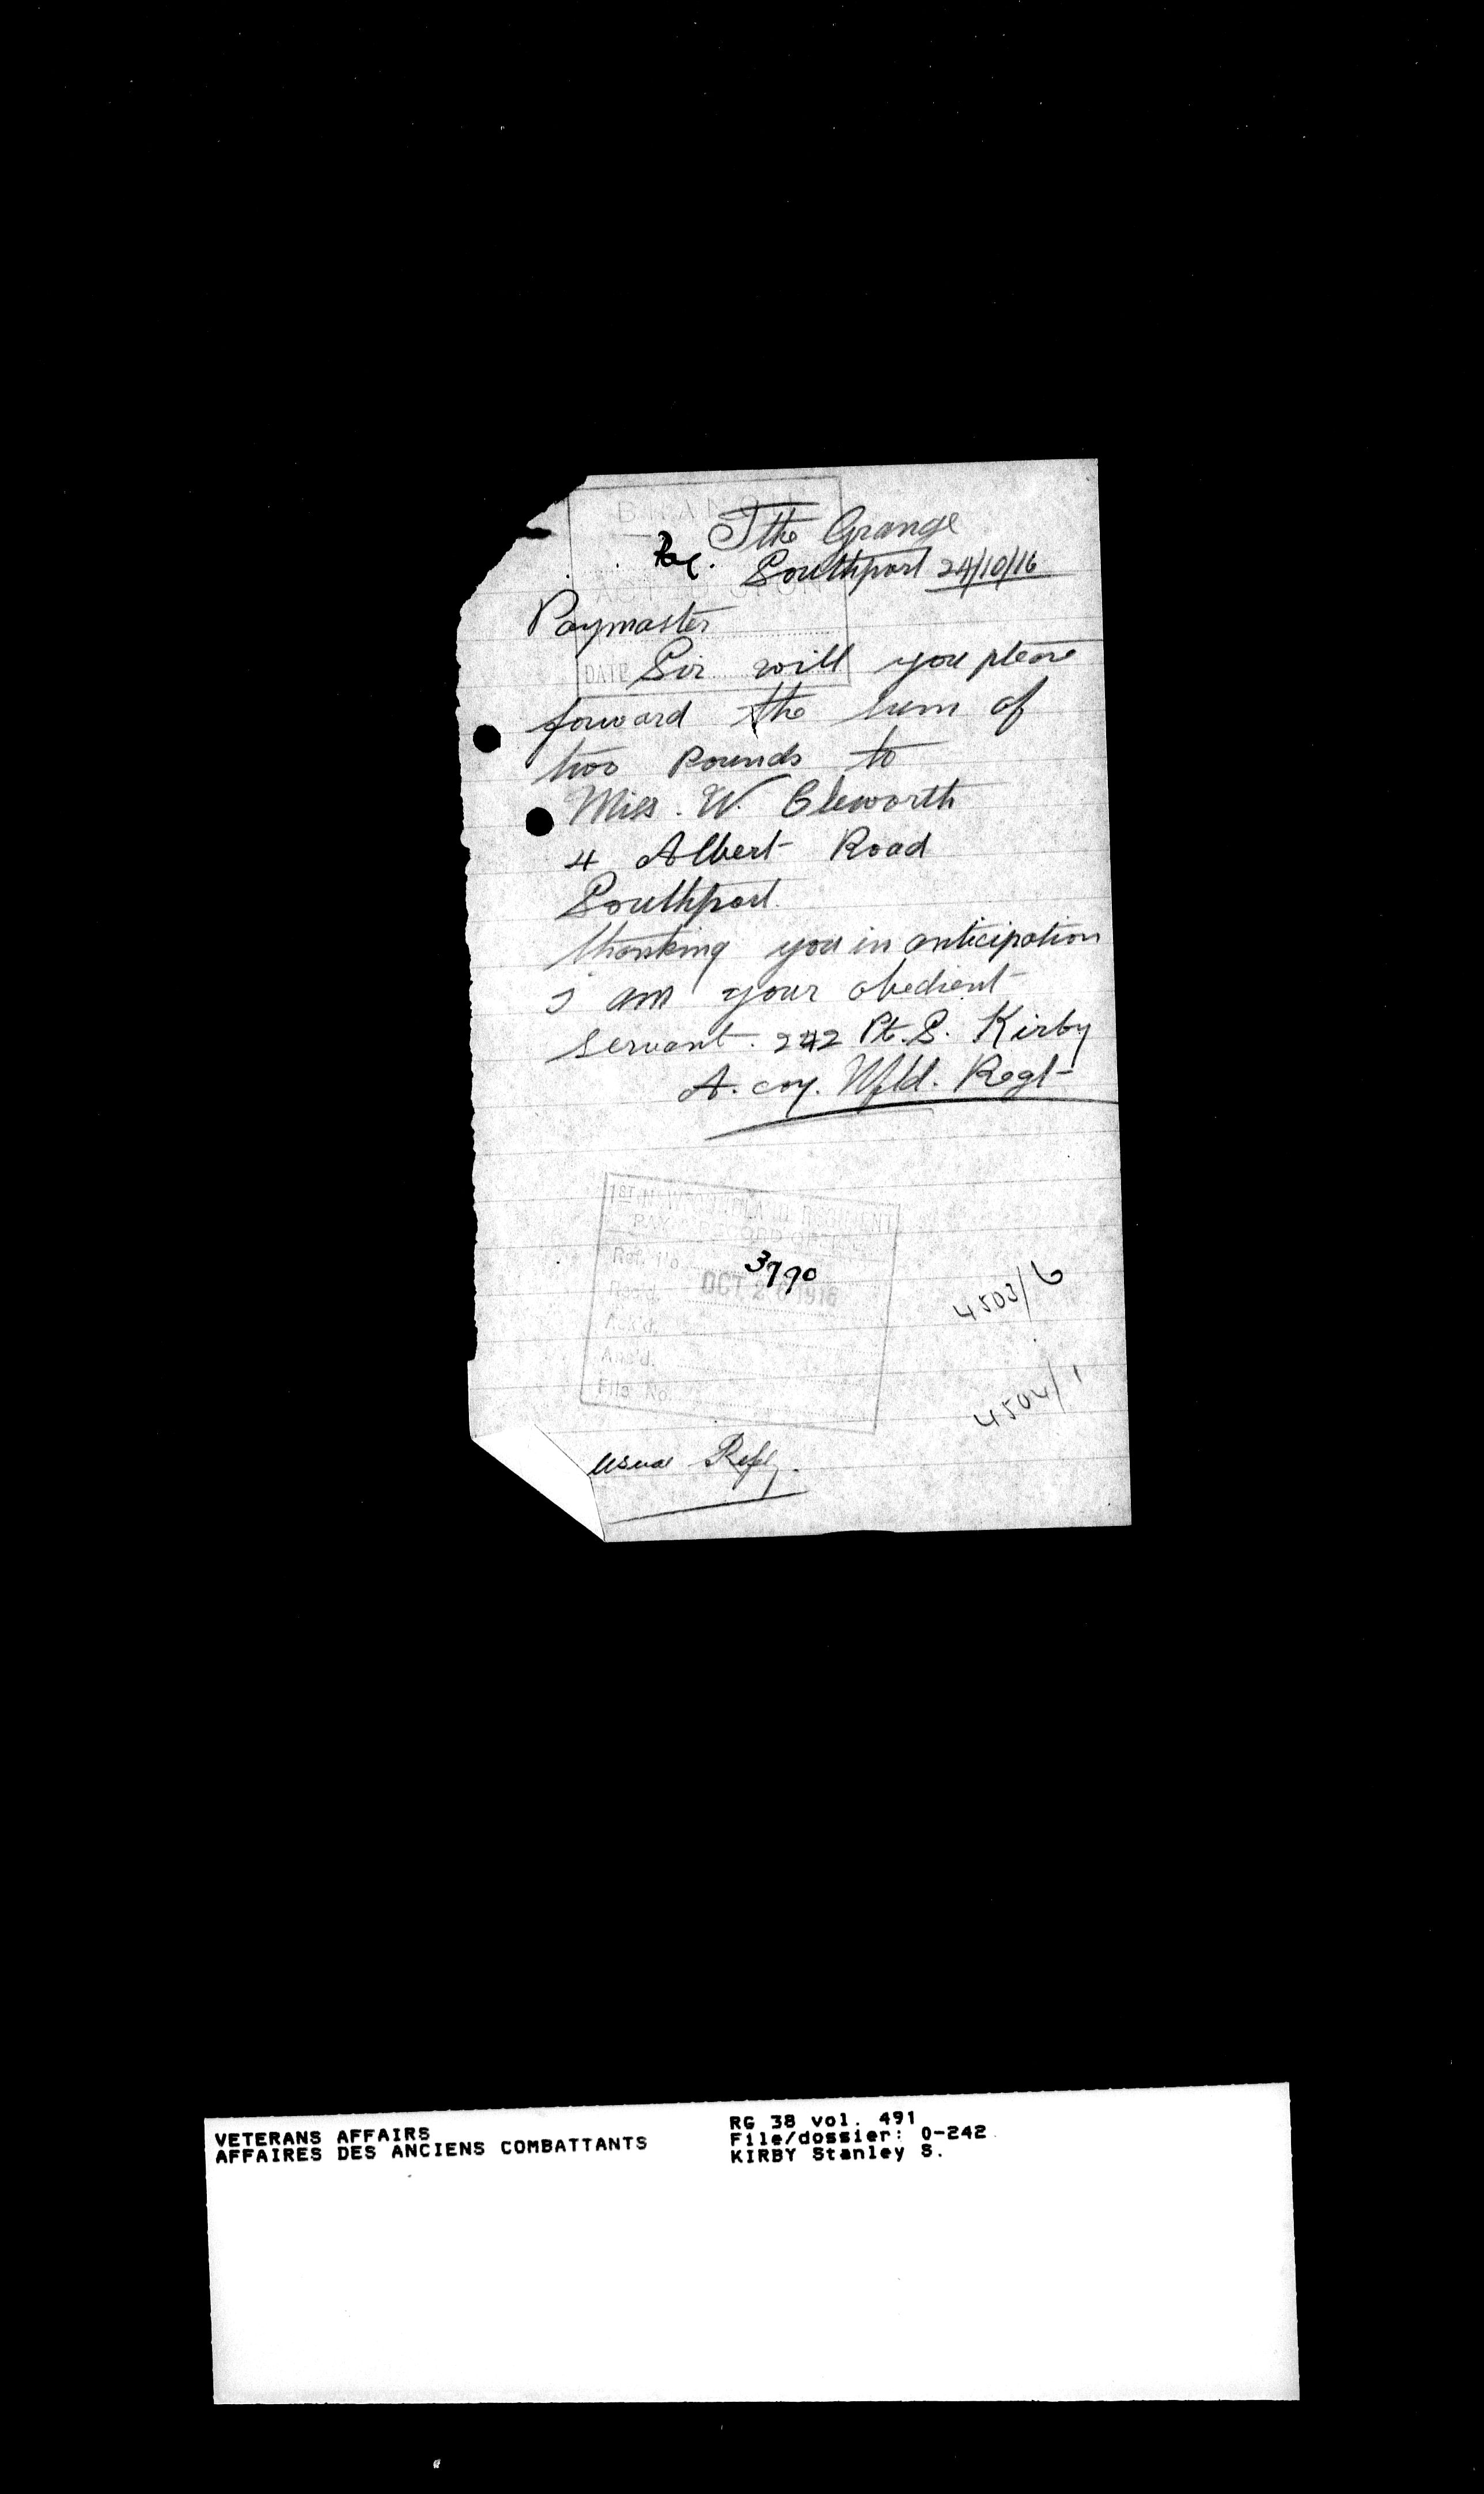 BRANCH
The Grange
Pay. Southport 24/10/16
ACTED UPON
Paymaster
DATE
Sir will you please
forward the sum of
two Pounds to
Miss. W. Cleworth
4 Albert Road
Southport.
thanking you in anticipation
I am your obedient
servant. 242 Pt. S. Kirby
A. coy. Nfld. Regt
1ST NEWFOUNDLAND REGIMENT
PAY & RECORD OFFICE
Ref. No. 3790
Rec'd. OCT 26 1916
Ack'd.
Ans'd.
File No.
4503/6
4504/1
Usual Reply.
VETERANS AFFAIRS
AFFAIRES DES ANCIENS COMBATTANTS
RG 38 vol. 491
File/dossier: 0-242
KIRBY Stanley S.